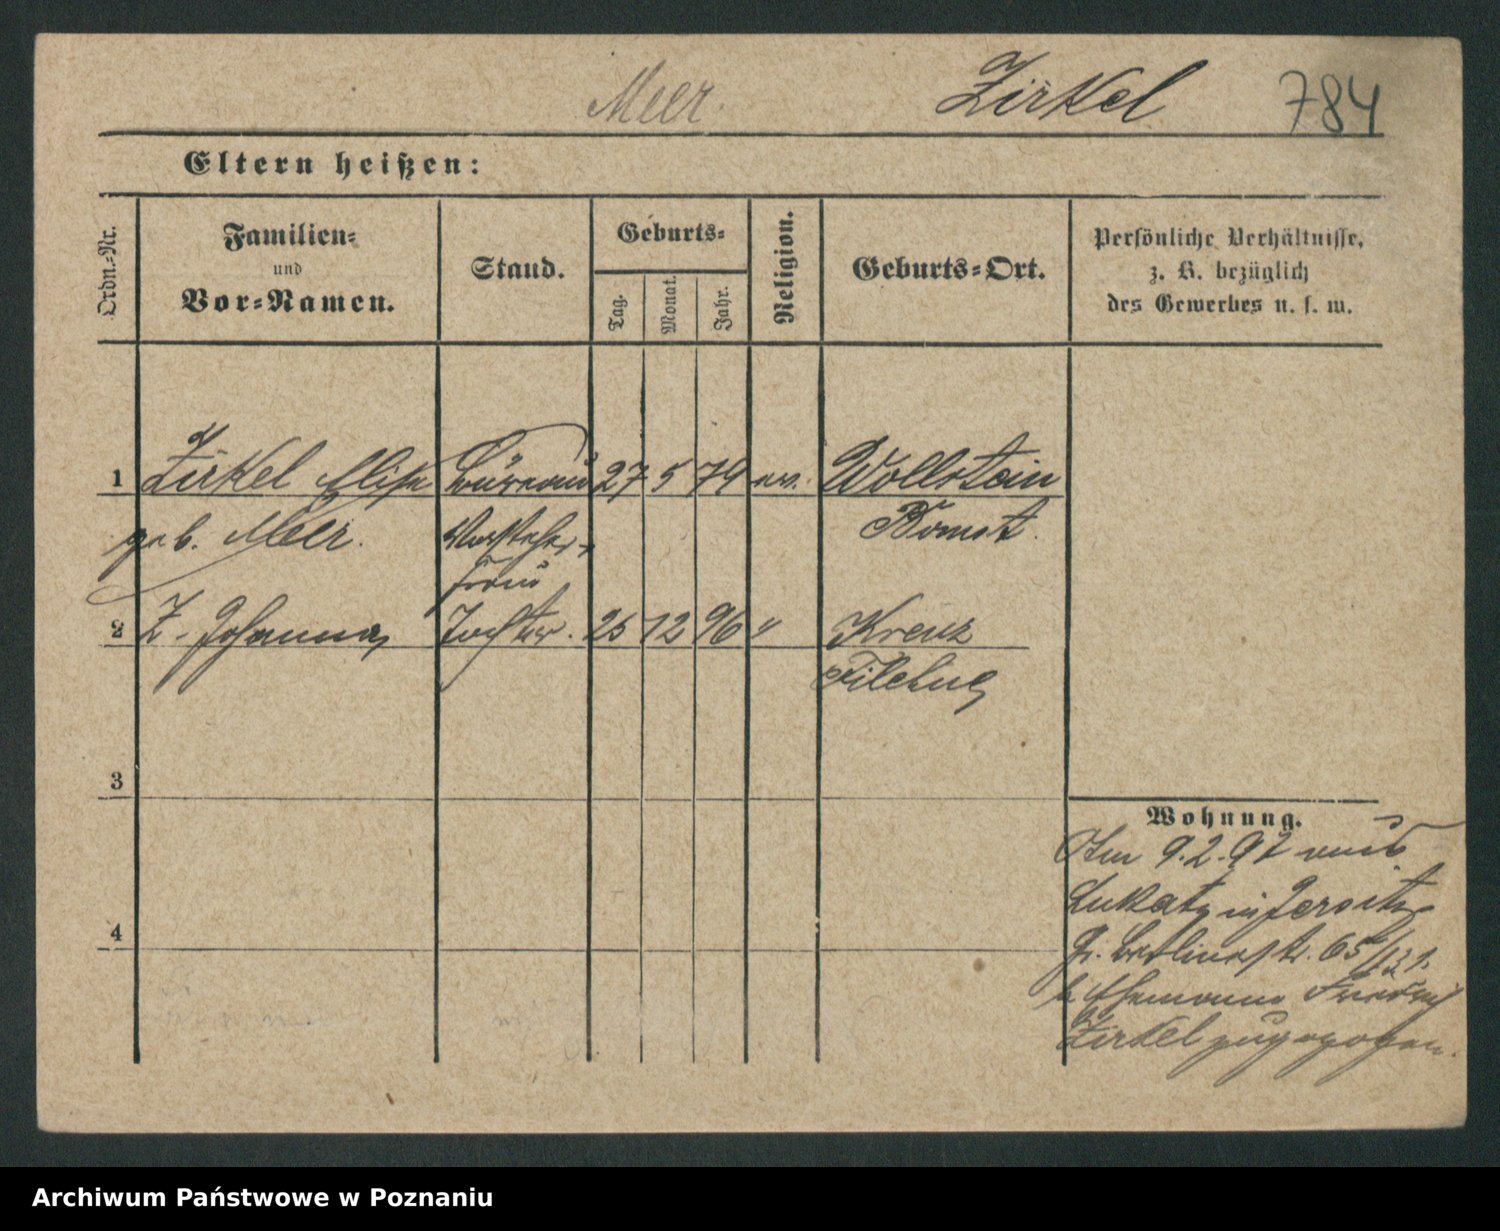 Meer.
Zirkel
784
Eltern heißen:
Ordn.-Nr.
Familien=
und
Vor=Namen.
Stand.
Geburts=
Tag.
Monat.
Jahr.
Religion.
Geburts=Ort.
Persönliche Verhältnisse,
z. B. bezüglich
des Gewerbes u. s. w.
1 Zirkel Elise Büreau 27 5 74 ev. Wollstein
geb. Meer. Vorsteher- Bomst.
frau
2 Z. Johanna Tochter. 25 12 96 " Kreuz
Filehne
3
4
Wohnung.
Am 9.2.97 aus
Lukatz in Jersitz
Gr. Berlinerstr. 65/
z. Ehemanne Friedrich
Zirkel zugezogen.
Archiwum Państwowe w Poznaniu